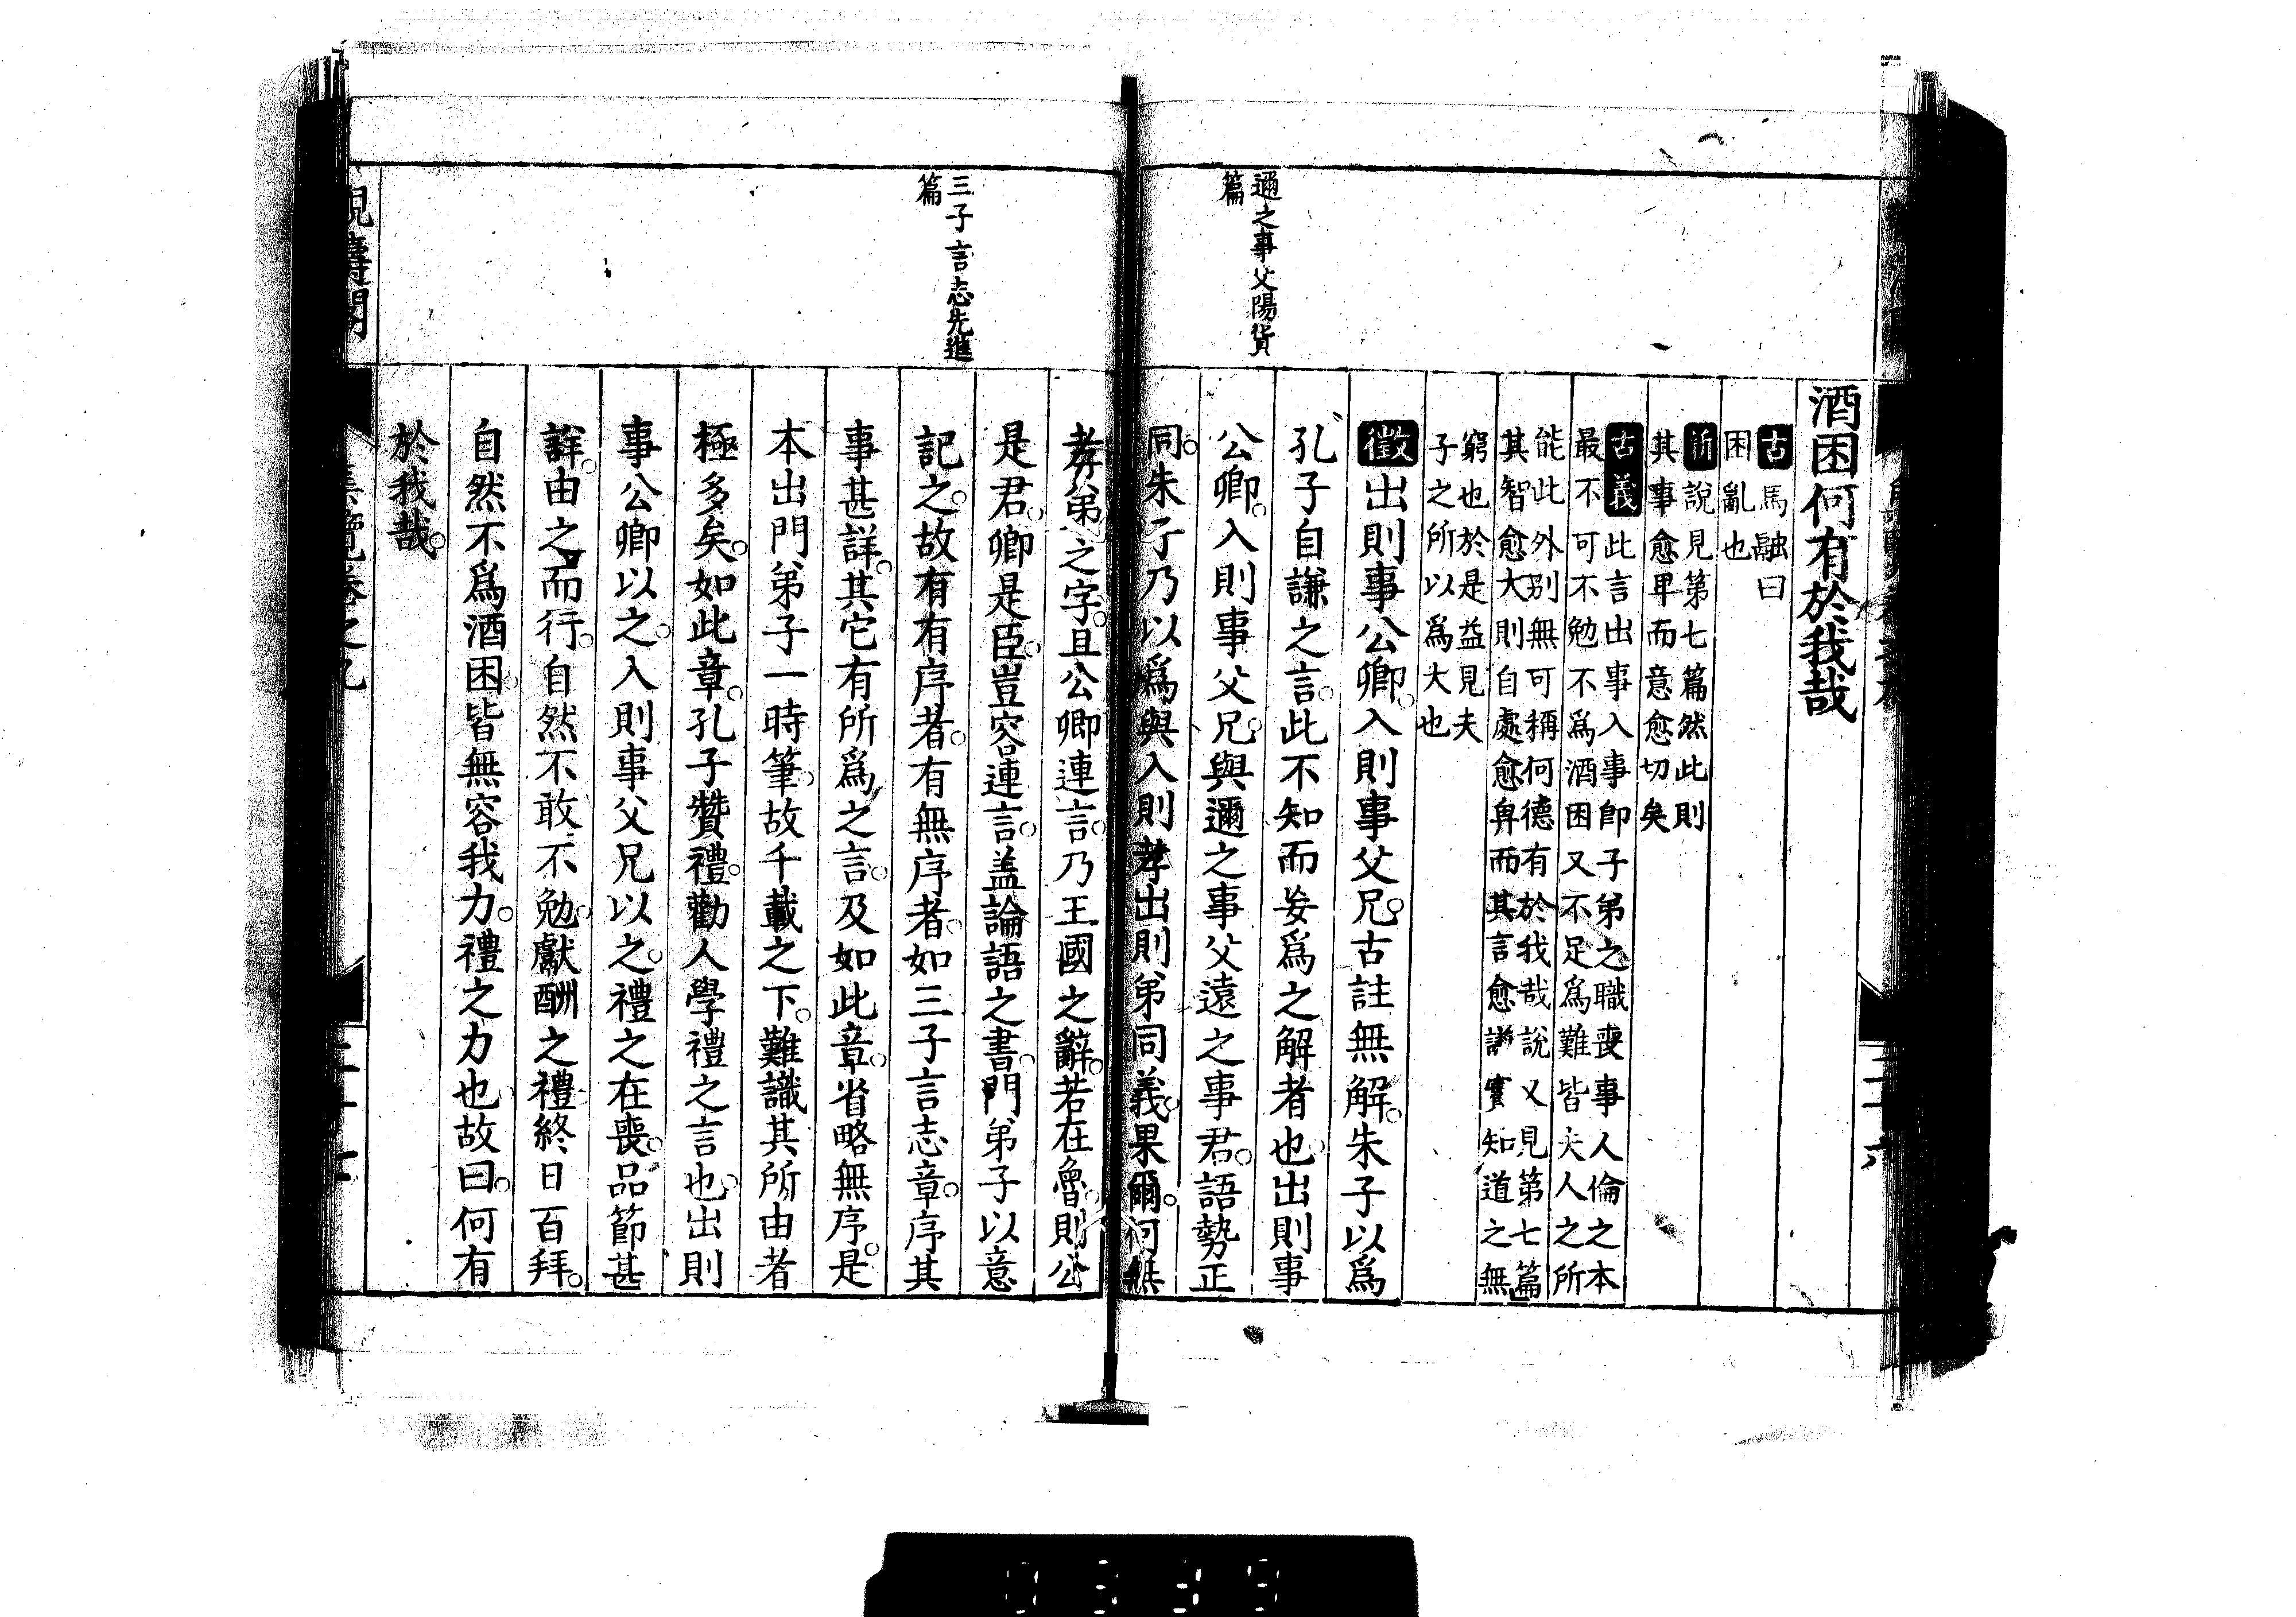 酒困何有於我哉
古馬融曰
困亂也
新說見第七篇然此則
其事愈卑而意愈切矣
古義此言出事入事即子弟之職喪事人倫之本
最不可不勉不爲酒困又不足爲難皆夫人之所
能此外別無可稱何德有於我哉說又見第七篇
其智愈大則自處愈卑而其言愈謙實知道之無
窮也於是益見夫
子之所以爲大也
徵出則事公卿入則事父兄古註無解朱子以爲
孔子自謙之言此不知而妄爲之解者也出則事
公卿入則事父兄與邇之事父遠之事君語勢正
同朱子乃以爲與入則孝出則弟同義果爾何無
邇之事父陽貨
篇
孝弟之字且公卿連言乃王國之辭若在魯則公
是君卿是臣豈容連言盖論語之書門弟子以意
記之故有有序者有無序者如三子言志章序其
事甚詳其它有所爲之言及如此章省略無序是
本出門弟子一時筆故千載之下難識其所由者
極多矣如此章孔子贊禮勸人學禮之言也出則
事公卿以之入則事父兄以之禮之在喪品節甚
詳由之而行自然不敢不勉獻酬之禮終日百拜
自然不爲酒困皆無容我力禮之力也故曰何有
於我哉
三子言志先進
篇
觀濤閣
集覽卷之九